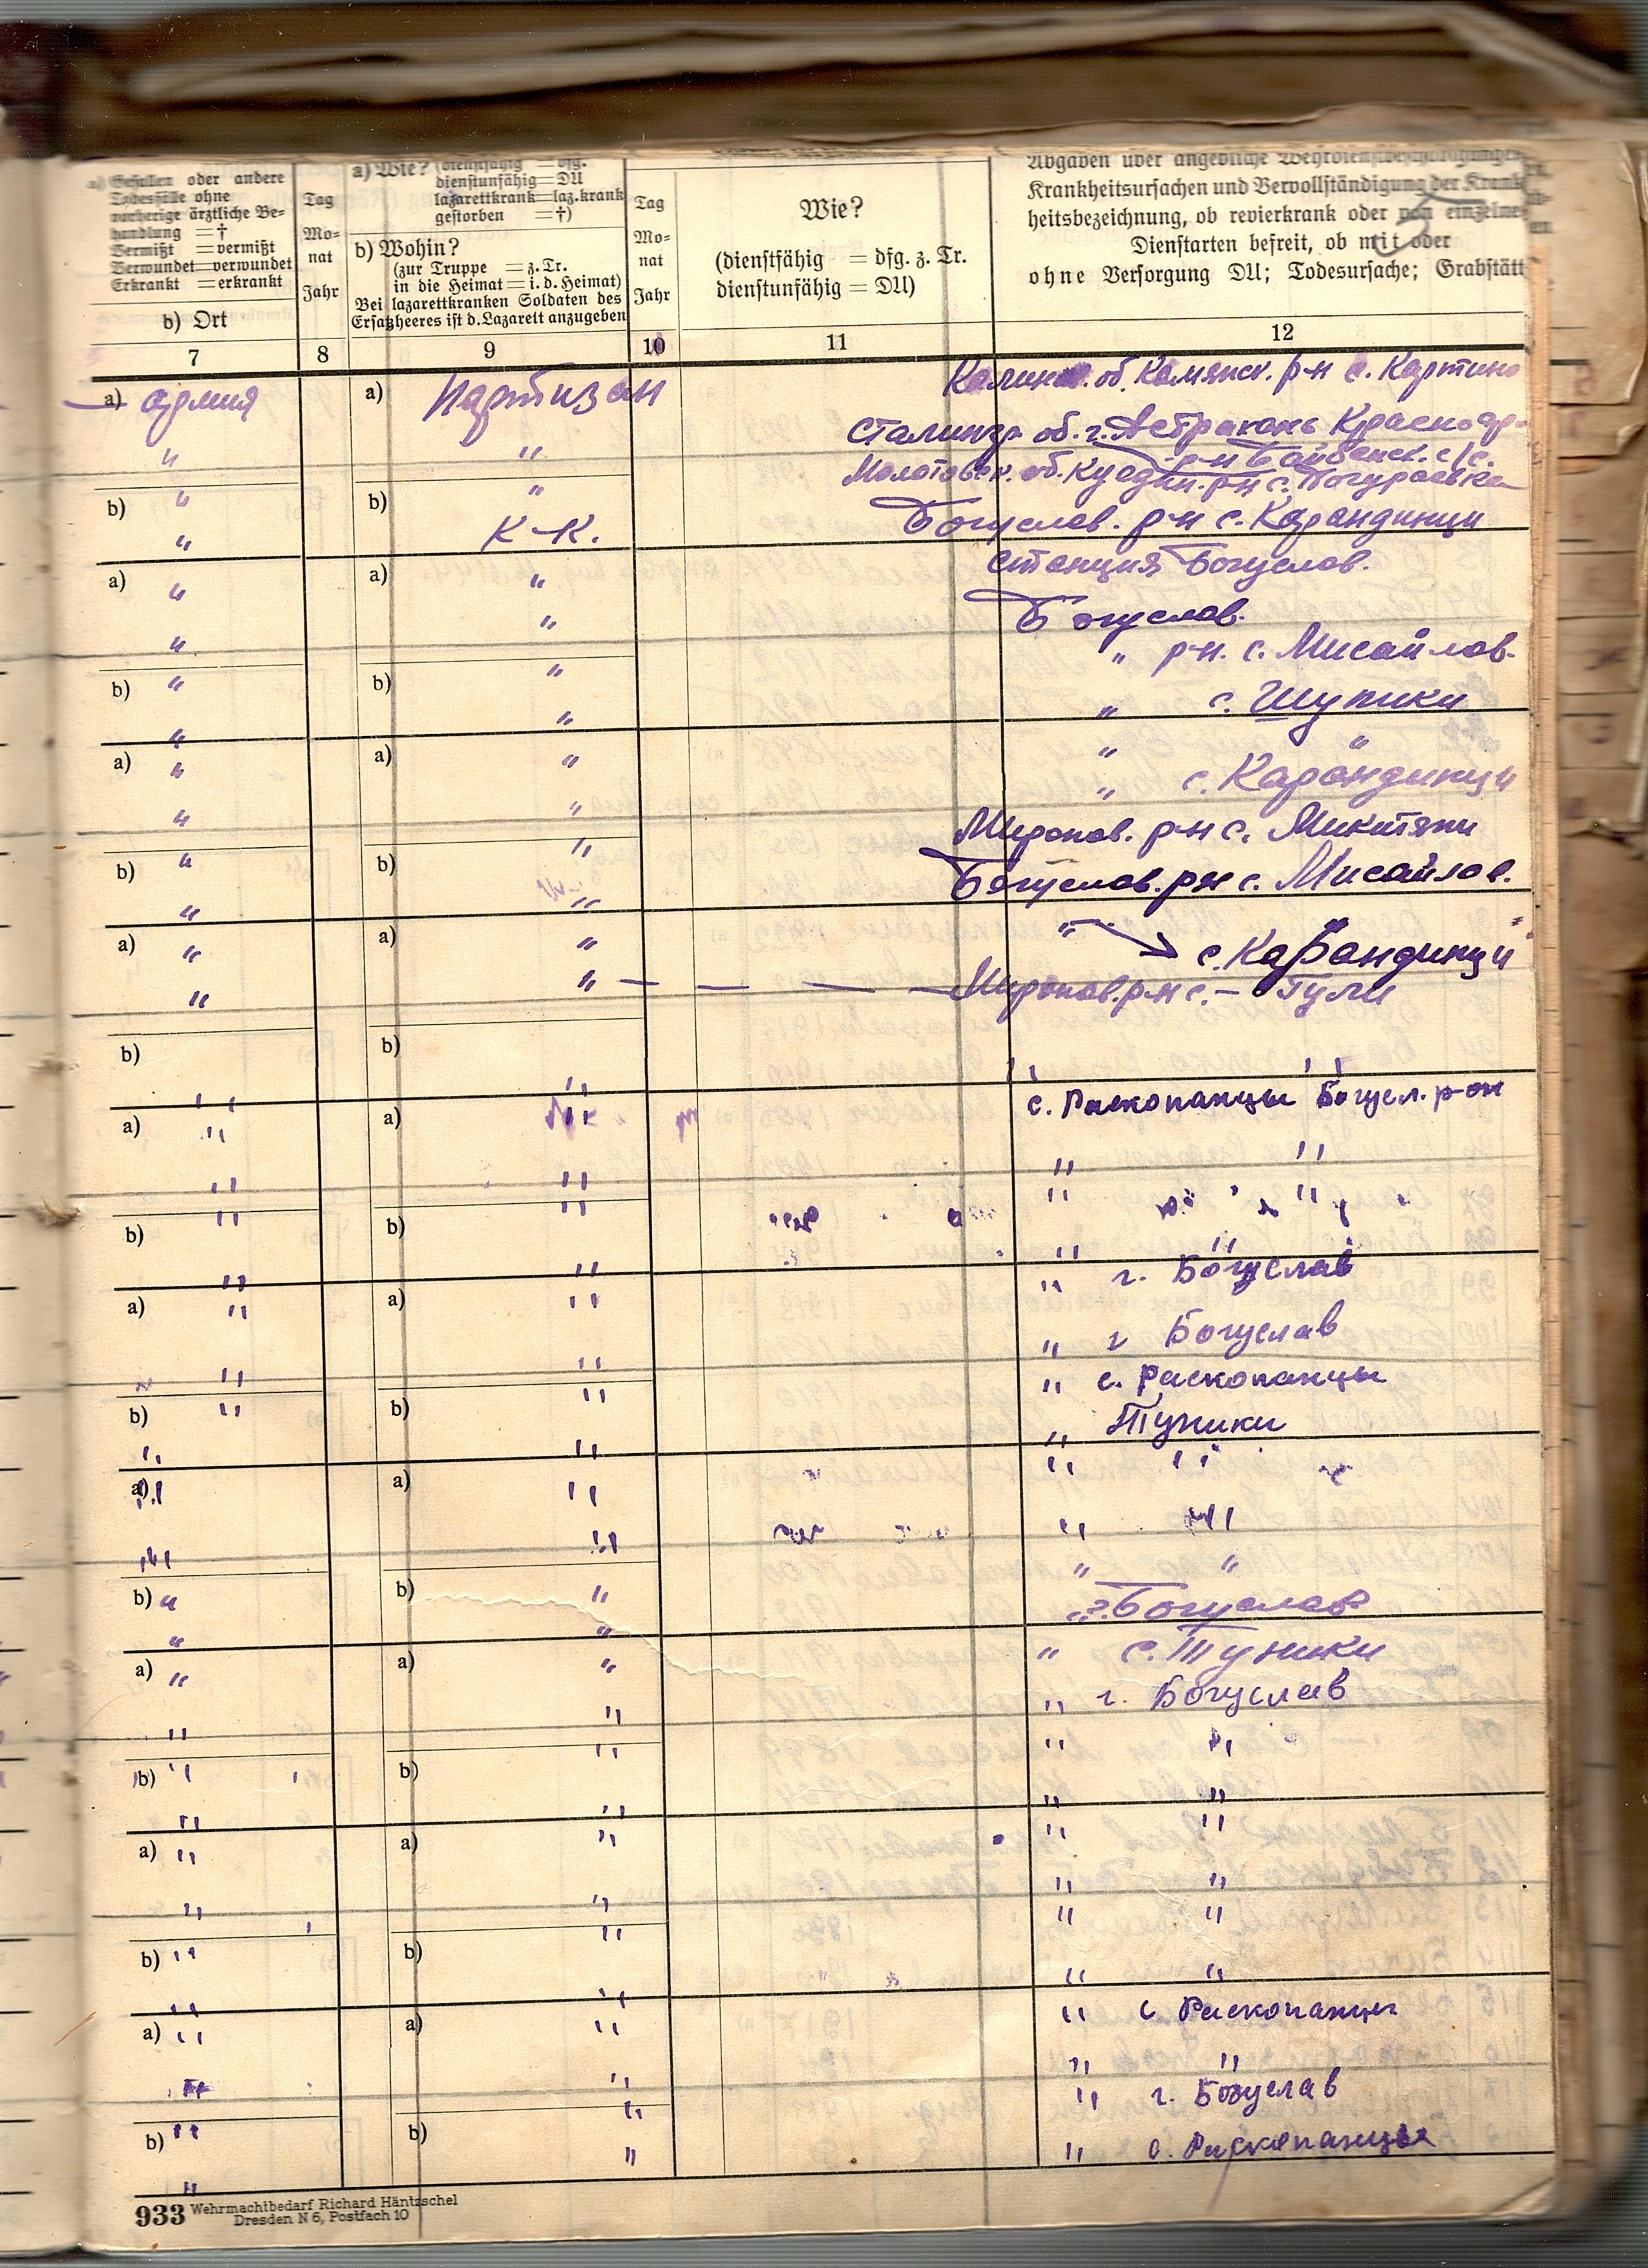 a) Gefallen oder andere
Todesfälle ohne
vorherige ärztliche Be-
handlung = †
Vermißt = vermißt
Verwundet = verwundet
Erkrankt = erkrankt
b) Ort
Tag
Mo-
nat
Jahr
a) Wie? (dienstfähig = dfg.
dienstunfähig = DU
lazarettkrank = laz.krank
gestorben = †)
b) Wohin?
(zur Truppe = z. Tr.
in die Heimat = i. d. Heimat)
Bei lazarettkranken Soldaten des
Ersatzheeres ist d. Lazarett anzugeben
Tag
Mo-
nat
Jahr
Wie?
(dienstfähig = dfg. z. Tr.
dienstunfähig = DU)
Abgaben über angebliche
Krankheitsursachen und Vervollständigung der Krank
heitsbezeichnung, ob revierkrank oder von einzelne
Dienstarten befreit, ob mit oder
ohne Versorgung DU; Todesursache; Grabstätt
7 8 9 10 11 12
a) армия a) партизан Калинин. об. Камянск. р-н с. Картино
" " Сталингр. об. г. Астрахань Краснояр.
р-н с/с.
b) " b) " Молотовск. об. Куедин. р-н с.
" К-К. Богуслав. р-н с. Карандинци
a) " a) " станция Богуслав.
" " Богуслав.
b) " b) " " р-н. с. Мисайлов.
" " " с. Шупики
a) " a) " " "
" " " с. Карандинци
b) " b) " Миронов. р-н с. Микитяни
" " Богуслав. р-н с. Мисайлов.
a) " a) " " "
с. Карандинци
" " — — — — Миронов. р-н с. – Тули
b) b)
" " " "
a) " a) " с. Раскопанцы Богусл. р-он
" " " "
b) " b) " " "
" " " "
a) " a) " " г. Богуслав
" " " г Богуслав
b) " b) " " с. Раскопанцы
" " " Туники
a) " a) " " "
" " " "
b) " b) " " "
" " " г. Богуслав
a) " a) " " с. Туники
" " " г. Богуслав
b) " b) " " "
" " " "
a) " a) " " "
" " " "
b) " b) " " "
" " " "
a) " a) " " с Раскопанцы
" " " "
b) " b) " " г. Богуслав
" " " с. Раскопанцы
933 Wehrmachtbedarf Richard Häntzschel
Dresden N 6, Postfach 10